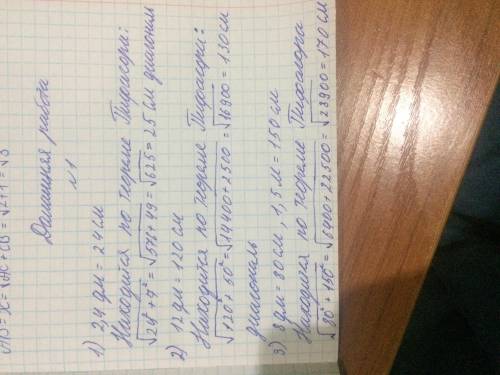 Домашняя работа
№1
1) 2,4 дм = 24 см
Находится по теореме Пифагора:
√24² + 7² = √576 + 49 = √625 = 25 см диагональ
2) 12 дм = 120 см
Находится по теореме Пифагора:
√120² + 50² = √14400 + 2500 = √16900 = 130 см
диагональ
3) 8 дм = 80 см, 1,5 м = 150 см
Находится по теореме Пифагора
√80² + 150² = √6400 + 22500 = √28900 = 170 см